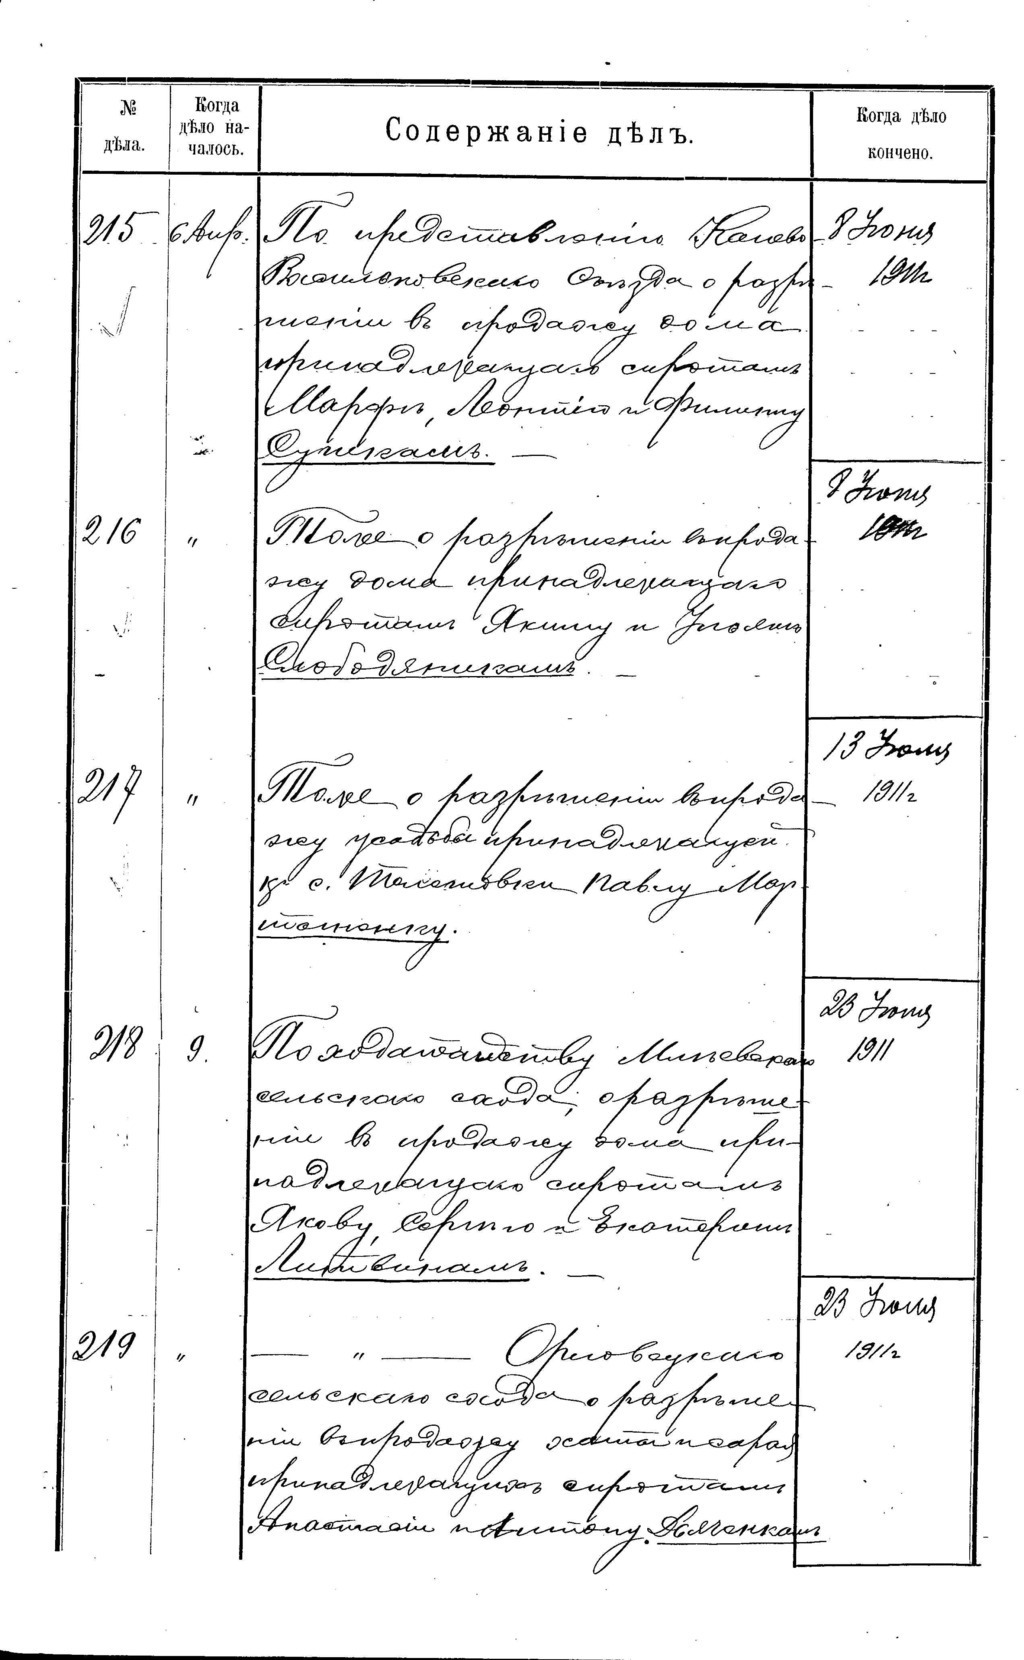 № дѣла.
Когда дѣло на-
чалось.
Содержаніе дѣлъ.
Когда дѣло
кончено.
215 6 Апр. По представленію Канево 8 Іюня
Васильковскаго Съѣзда о разрѣ- 1911г
шеніи въ продажу дома
принадлежащаго сиротамъ
Марфѣ, Леонтію и Филиппу
Супікамъ. —
8 Іюня
216 " Тоже о разрѣшеніи въ прода- 1911г
жу дома принадлежащаго
сиротамъ Якиму и
Слободяникамъ. —
13 Іюля
217 " Тоже о разрѣшеніи въ прода- 1911г
жу усадьбы принадлежащей
въ с. Телешовки Павлу Мар-
тыненку.
23 Іюня
218 9. По ходатайству Милевскаго 1911
сельскаго схода, о разрѣше-
ніи въ продажу дома при-
надлежащаго сиротамъ
Якову, Сергѣю и Екатеринѣ
Литвинамъ. —
23 Іюля
219 " — " — Орловецкаго 1911г
сельскаго схода о разрѣше-
ніи въ продажу хаты и сарая
принадлежащихъ сиротамъ
Анастасіи и Антону Дяченкамъ